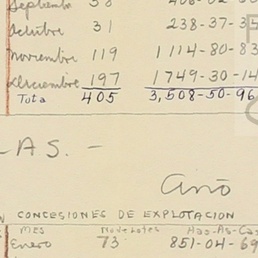 Septiembre 38
Octubre 31 238-37-35
Noviembre 119 1114-80-83
Diciembre 197 1749-30-14
Tota 405 3,508-50-96
AS. -
Año
CONCESIONES DE EXPLOTACION
MES
Enero 73 851-04-69